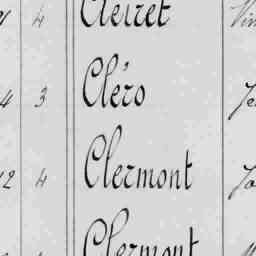 4 Cleiret
4 3 Cléro Je
12 4 Clermont Jo
Clermont